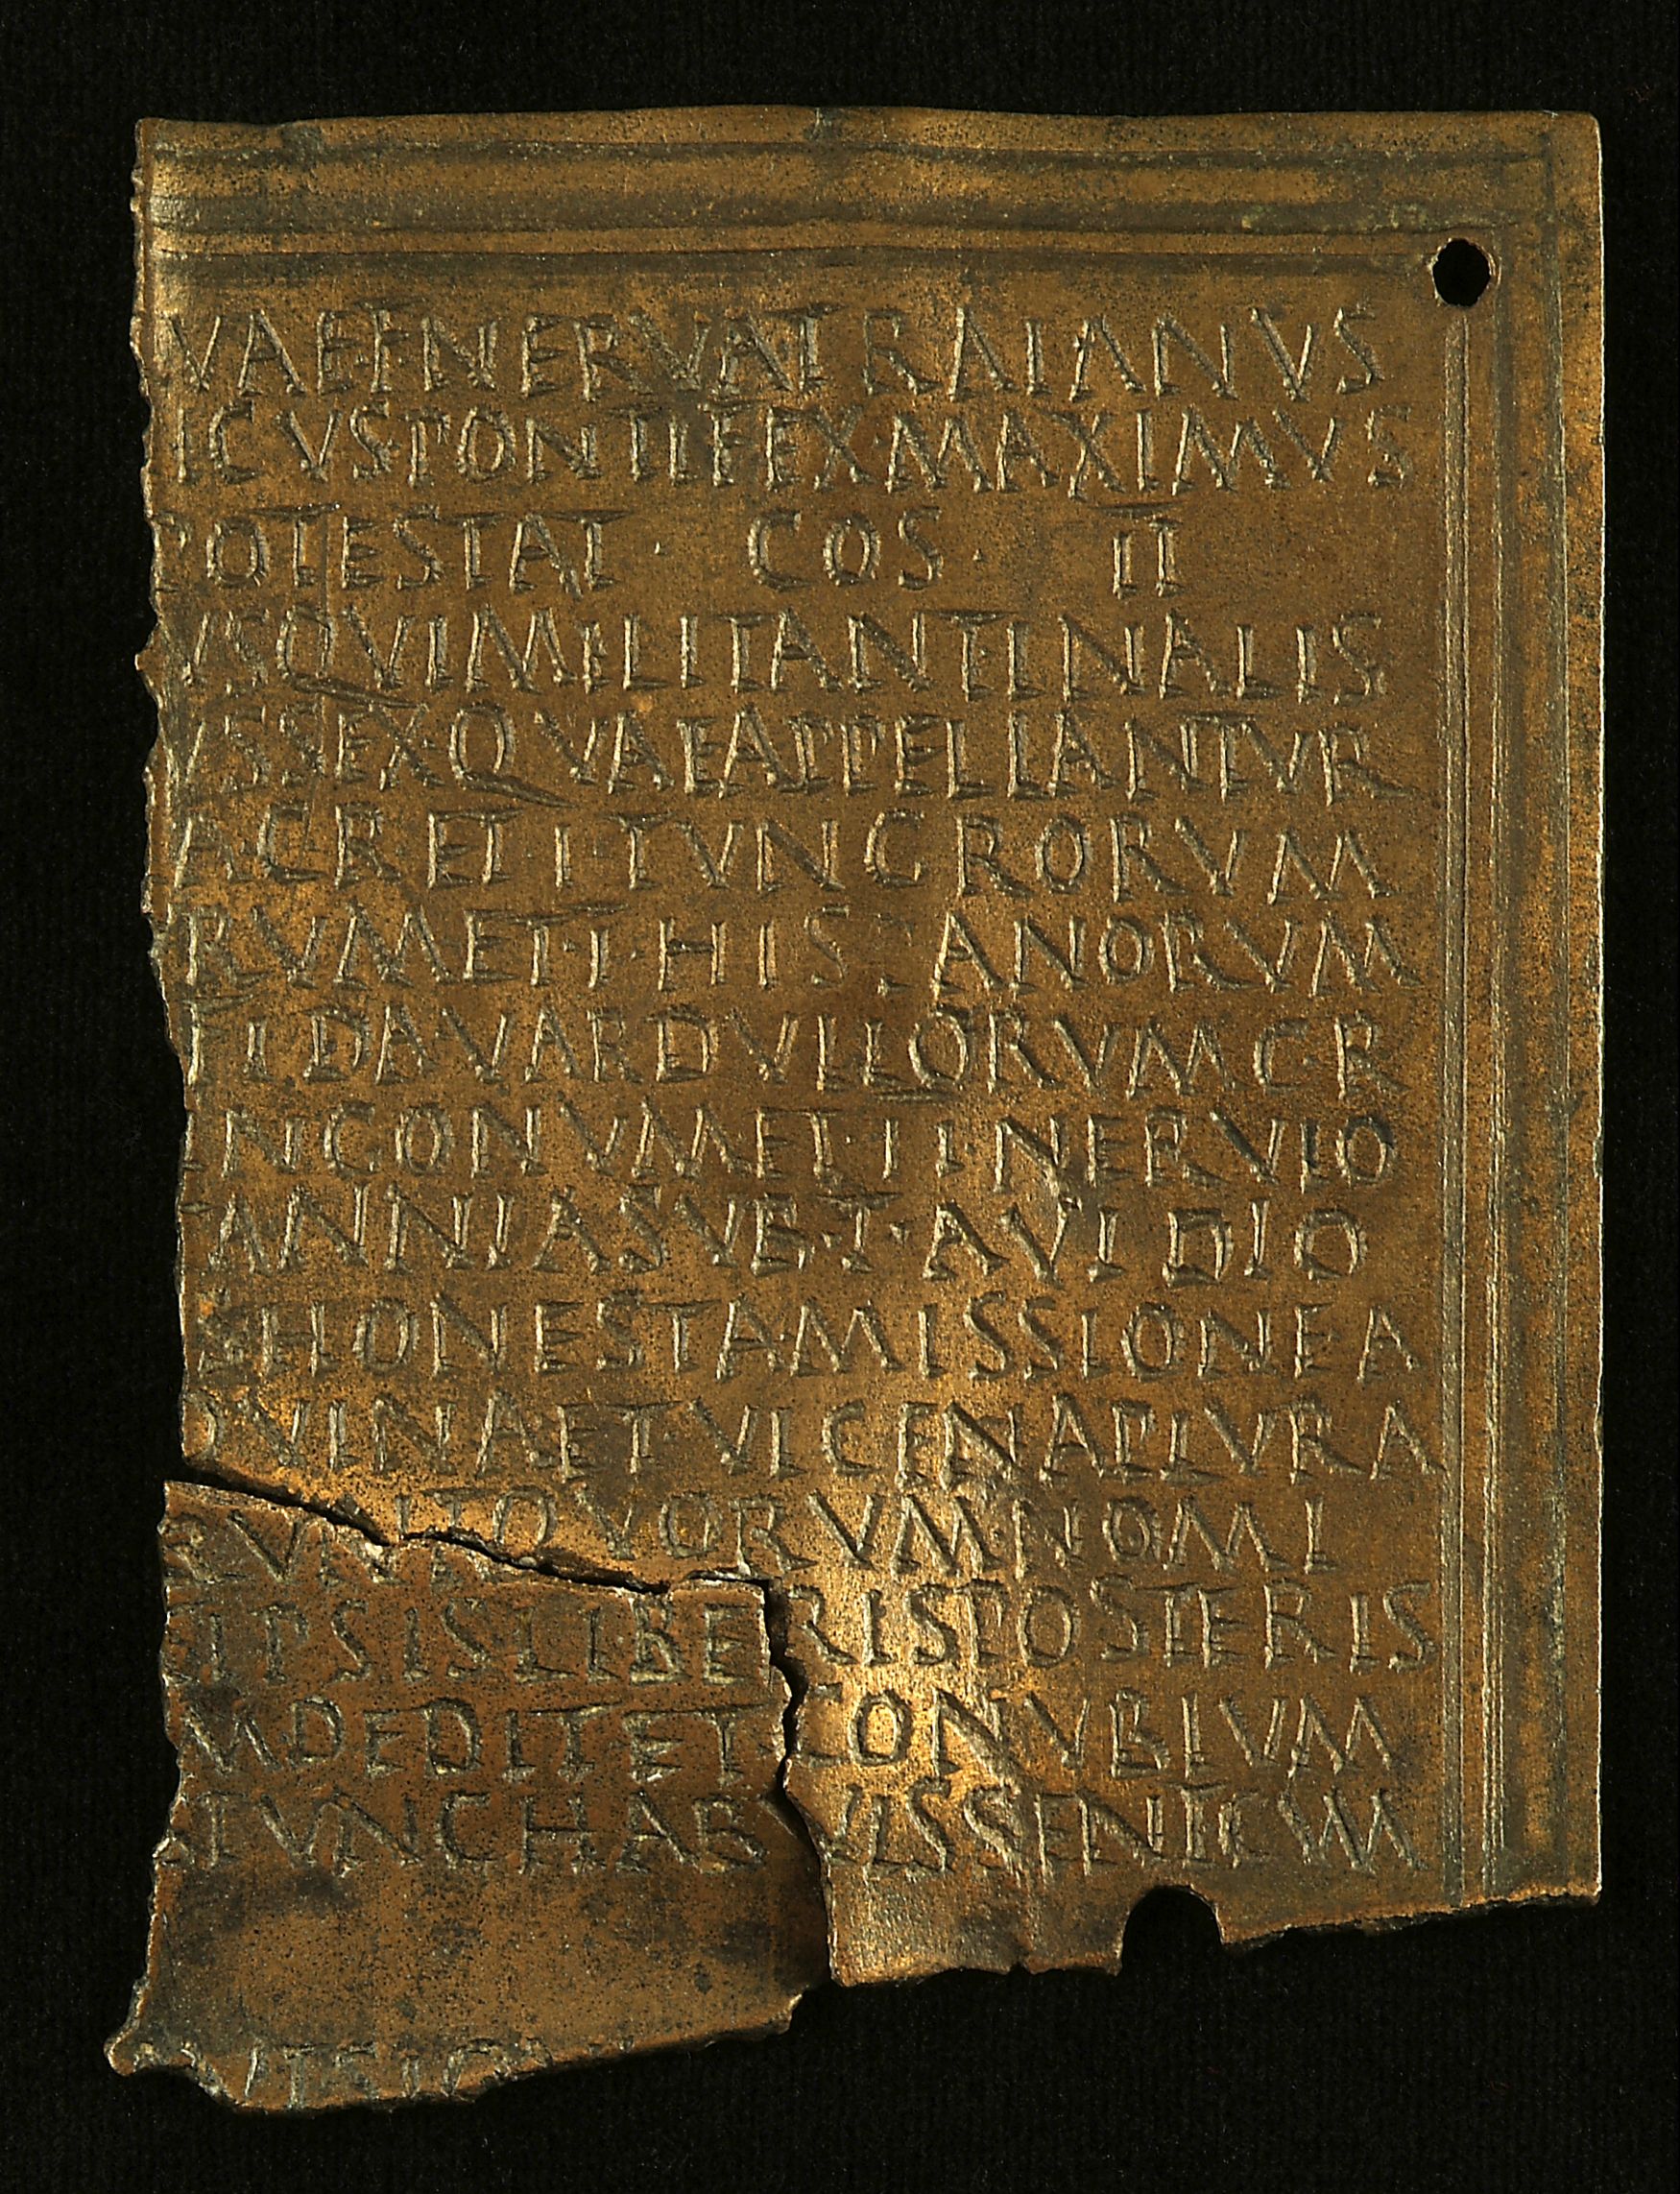 VAE·F·NERVA TRAIANVS
ICVS·PONTIFEX·MAXIMVS
POTESTAT · COS · II
VS QVI MILITANT IN ALIS
VS SEX·QVAE APPELLANTVR
A·C·R·ET I·TVNGRORVM
RVM ET·I·HISPANORVM
FIDA·VARDVLLORVM·C·R
INGONVM ET·II·NERVIO
TANNIA SVB·T·AVIDIO
HONESTA·MISSIONE A
QVINA ET·VICENA PLVRA
RVNT QVORVM·NOMI
IPSIS LIBERIS POSTERIS
M DEDIT ET·CONVBIVM
S TVNC HABVISSENT CVM